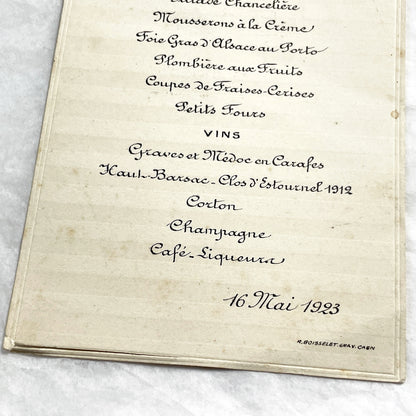 Salade Chancelière
Mousserons à la Crème
Foie Gras d'Alsace au Porto
Plombière aux Fruits
Coupes de Fraises-Cerises
Petits Fours
VINS
Graves et Médoc en Carafes
Haut-Barsac-Clos d'Estournel 1912
Corton
Champagne
Café-Liqueurs
16 Mai 1923
R. BOISSELET. GRAV. CAEN